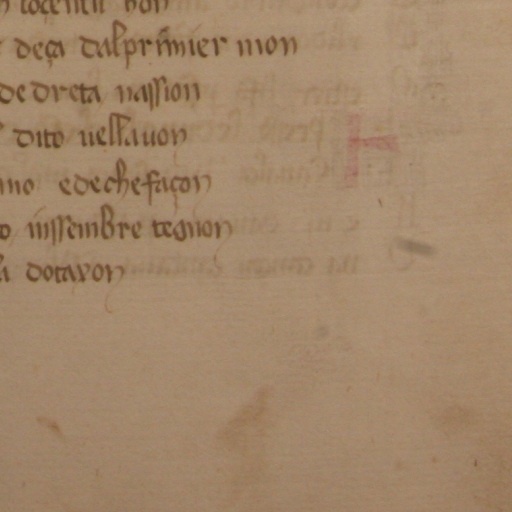 non
deça dalprimier mon
de dreta nassion
dito uellauon
edechefaçon
inssembre tegnon
dotaxon